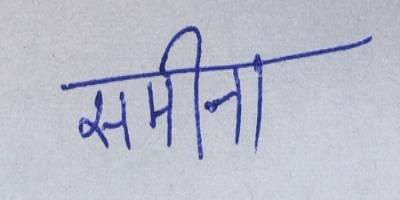 समीना